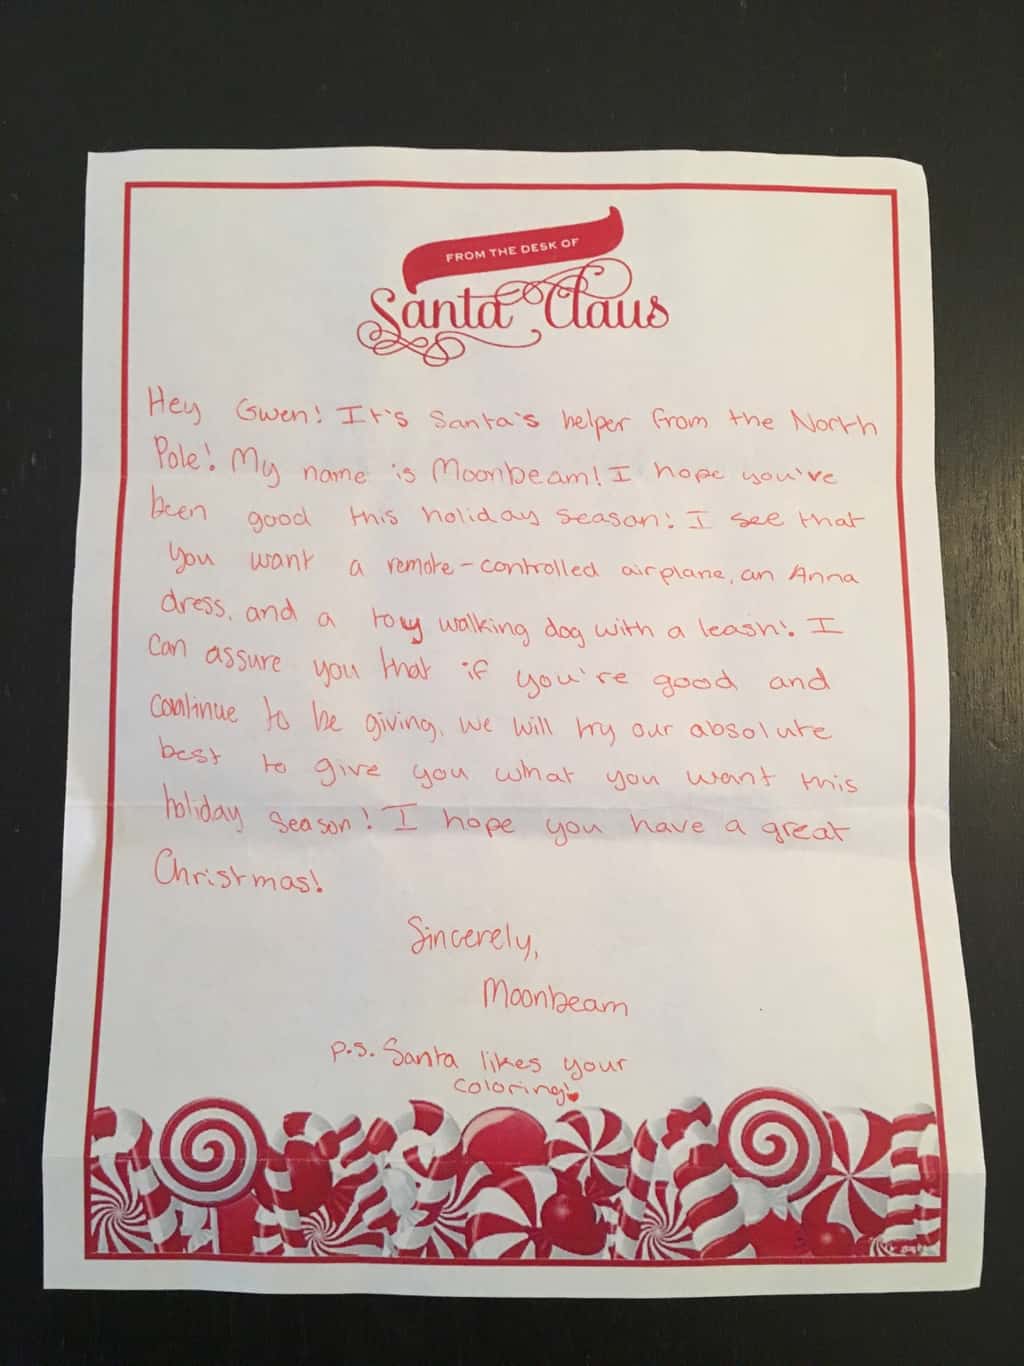 FROM THE DESK OF
Santa Claus
Hey Gwen! It's Santa's helper from the North
Pole! My name is Moonbeam! I hope you've
been good this holiday season! I see that
you want a remote-controlled airplane, an Anna
dress, and a toy walking dog with a leash! I
can assure you that if you're good and
continue to be giving, we will try our absolute
best to give you what you want this
holiday season! I hope you have a great
Christmas!
Sincerely,
Moonbeam
p.s. Santa likes your
coloring!